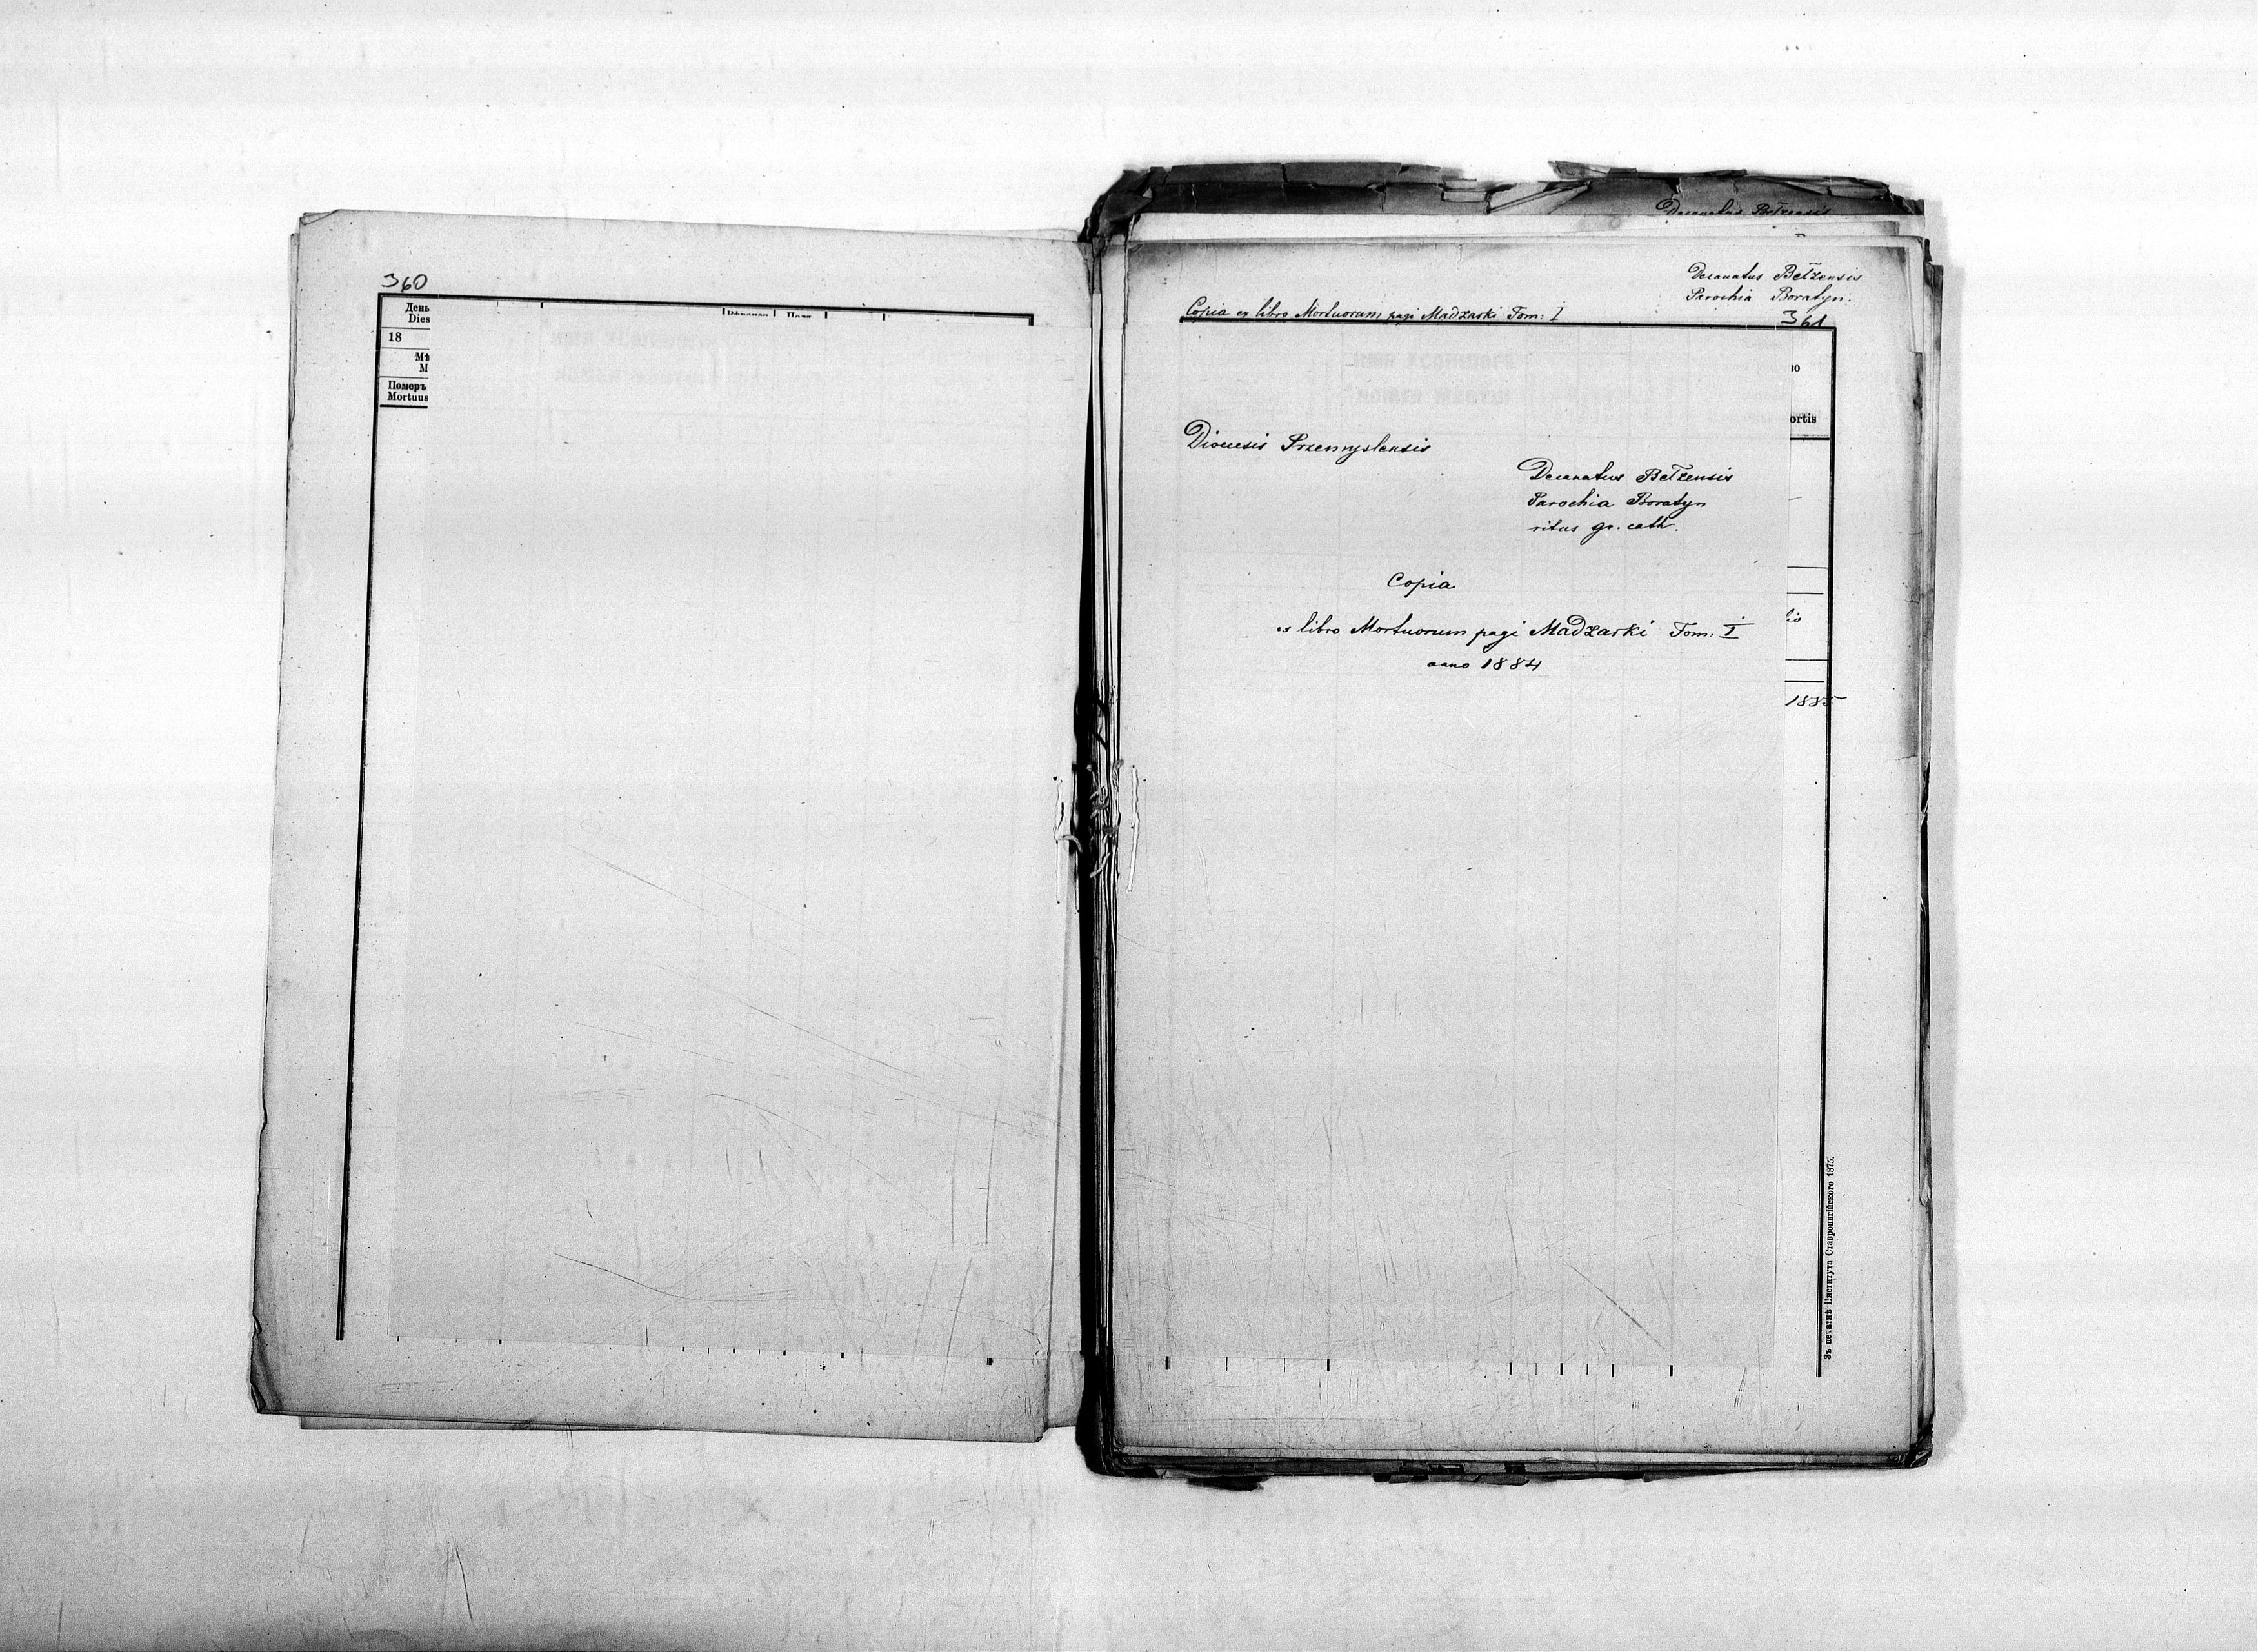 360
День
Dies
18
Померъ
Mortuus
Decanatus Bełzensis
Decanatus Bełzensis
Parochia Boratyn.
Copia ex libro Mortuorum pagi Madzarki Tom: I
361
ortis
Diocesis Przemyslensis
Decanatus Bełzensis
Parochia Boratyn
ritus gr. cath.
Copia
ex libro Mortuorum pagi Madzarki Tom. I
anno 1884
1885
Зъ печатнѣ Института Ставропигійского 1875.